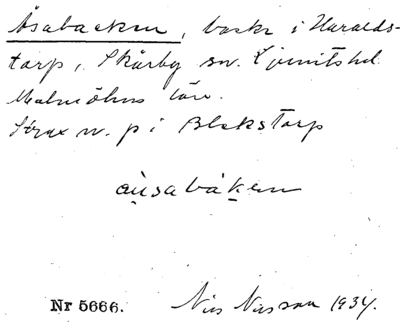 Åsabacken, backe i Haralds-
torp, Skårby sn. Ljunits hd.
Malmöhus län.
Strax n. p i Blekstorp
åu̇sabåken
Nr 5666. Nils Nilsson 1934.